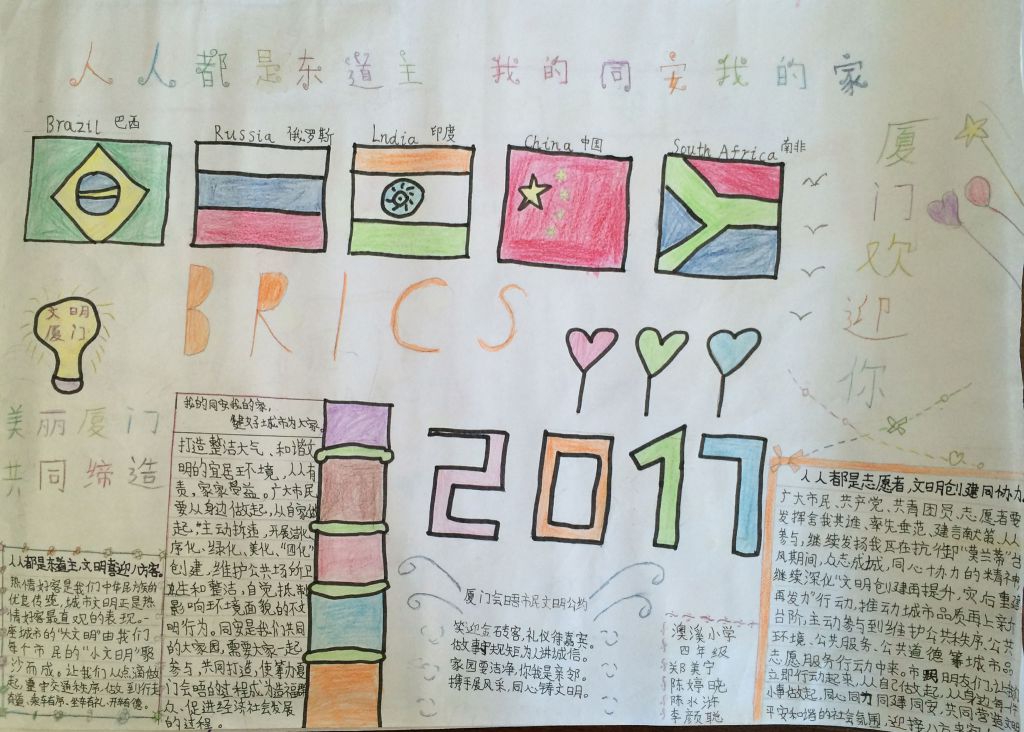 人人都是东道主 我的同安我的家
Brazil 巴西
Russia 俄罗斯
Lndia 印度
China 中国
South Africa 南非
厦门欢迎你
BRICS
文明
厦门
2017
美丽厦门
共同缔造
人人都是东道主,文明喜迎八方客。
热情好客是我们中华民族的
优良传统,城市文明正是热
情好客最直观的表现。一
座城市的“大文明”由我们
每个市民的“小文明”聚
沙而成。让我们从点滴做
起,重守交通秩序,做到行走
有道、乘车有序、坐车有礼、开车有德。
我的同安我的家,
健好土城市为大家。
打造整洁大气、和谐文
明的宜居环境,人人有
责,家家受益。广大市民
要从身边做起,从自家做
起,“主动拆违,开展洁化、
序化、绿化、美化、“四化”
创建,维护公共场所卫
生和整洁,自觉抵制
影响环境面貌的不文
明行为。同安是我们共同
的大家园,需要大家一起
参与,共同打造,使筹办厦
门会晤的过程成为造福群
众、促进经济社会发展
的过程。
厦门会晤市民文明公约
笑迎金砖客,礼仪待嘉宾。
做事守规矩,为人讲诚信。
家园要洁净,你我是亲邻。
携手展风采,同心铸文明。
澳溪小学
四年级
郑美宁
陈婷晓
陈水浒
李颜聪
人人都是志愿者,文明创建同协力
广大市民、共产党、共青团员、志愿者要
发挥舍我其谁、率先垂范、建言献策、人人
参与,继续发扬我区在抗御“莫兰蒂”台
风期间,众志成城,同心协力的精神
继续深化“文明创建再提升,灾后重建
再发力”行动,推动城市品质再上新
台阶,主动参与到维护公共秩序、公共
环境、公共服务、公共道德等城市品
志愿服务行动中来。市民朋友们,让我们
立即行动起来,从自己做起,从身边每一件
小事做起,同心同力同建同安,共同营造文明
平安和谐的社会氛围,迎接八方来宾